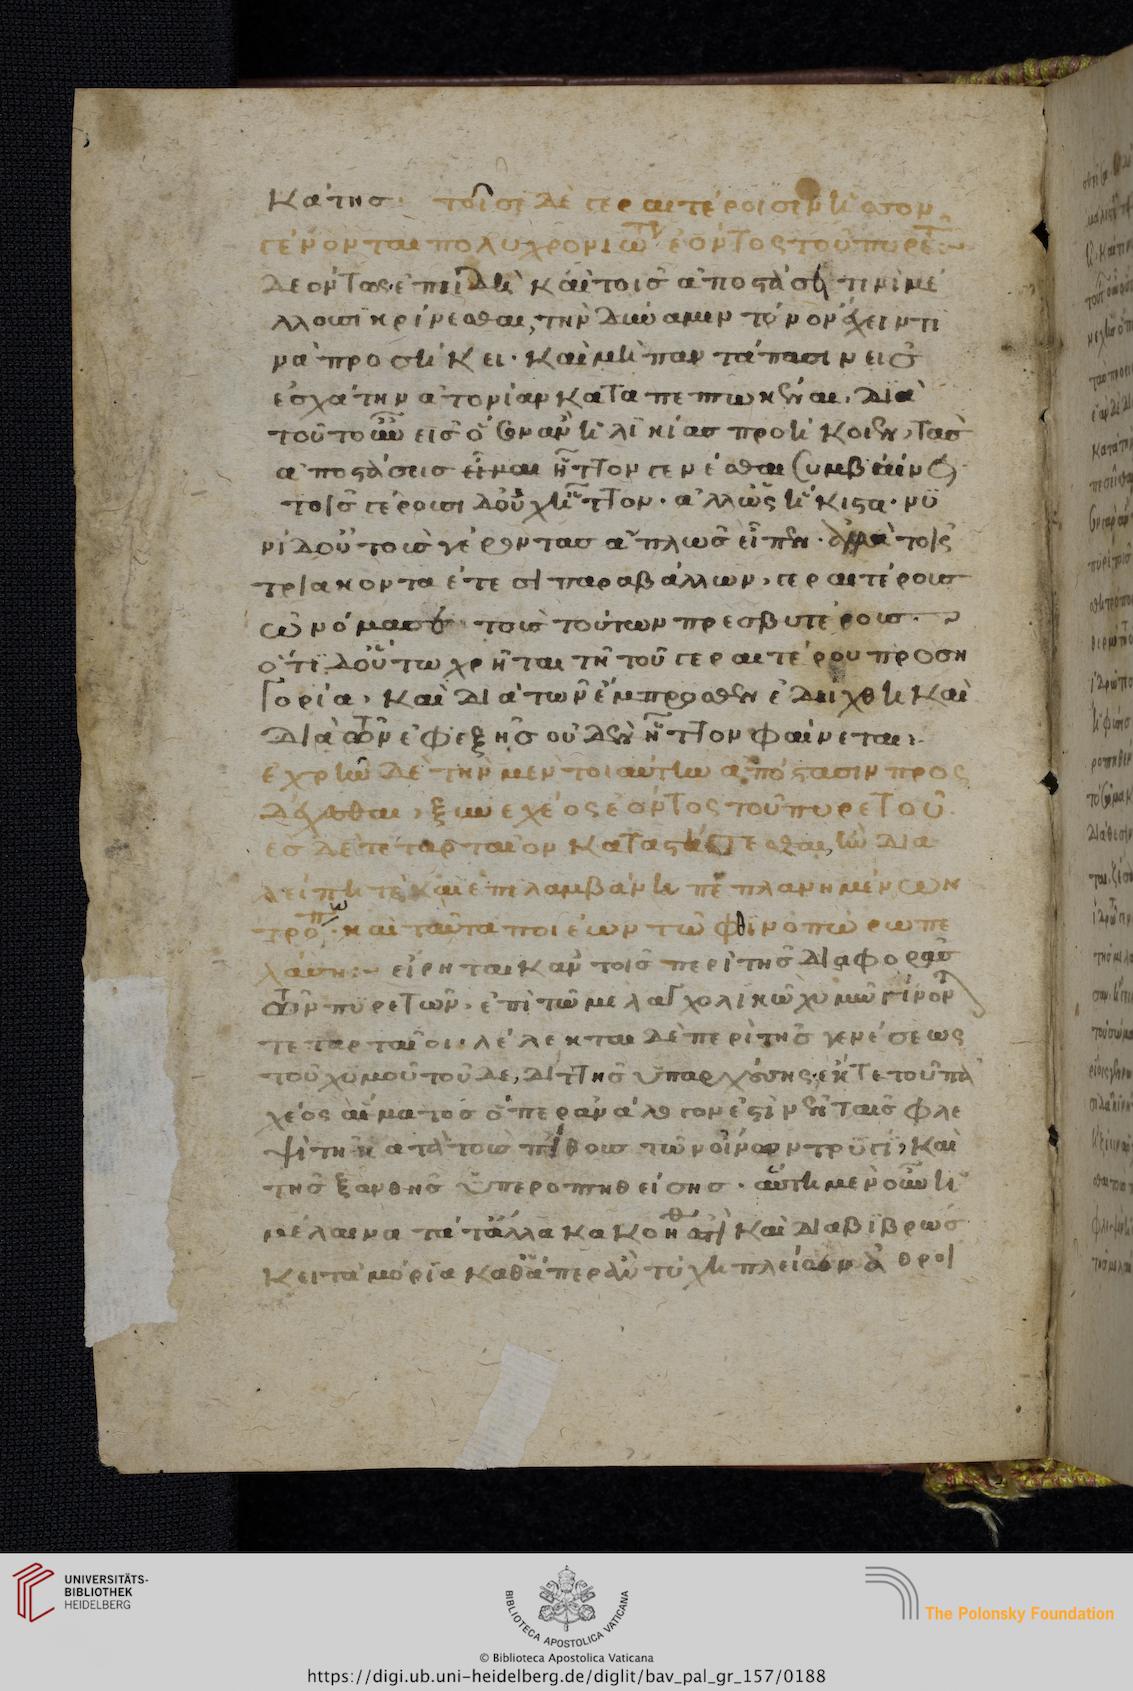 κάτης· τοῖσι δὲ γεραιτέροισιν ἧσσον
γίνονται πολυχρονιωτ ἐόντος τοῦ πυρετ
δέοντας ἐπειδὴ καὶ τοῖς ἀποστάσει τινὶ με
λλουσι κρίνεσθαι, τὴν δύναμιν τόνον ἔχειν τι
νὰ προσήκει· καὶ μὴ παντάπασιν εἰς
ἐσχάτην ἀτονίαν καταπεπτωκέναι, διὰ
τοῦτο οὖν εἰς ὅσον ἂν ἡλικίας προήκοιεν, τὰς
ἀποστάσεις εἶναι ἧττον γενέσθαι συμβαίνει
τοῖς γέρουσι δ' οὐχ ἧττον· ἀλλ' ὡς ἥκιστα· νῦ
νὶ δ' οὐ τοὺς γέροντας ἁπλῶς εἶπεν· ἀλλὰ τοῖς
τριάκοντα ἔτεσι παραβάλλων, γεραιτέροις
ὠνόμασε τοὺς τούτων πρεσβυτέροις.
ὅτι δ' οὕτω χρῆται τῆ τοῦ γεραιτέρου προση
γορία, καὶ διὰ τῶν ἔμπροσθεν ἐδείχθη καὶ
διὰ τῶν ἐφεξῆς οὐδὲν ἧττον φαίνεται·
ἐχρῆν δὲ τὴν μὲν τοιαύτην ἀπόστασιν προς
δέχεσθαι, ξυνεχέος ἐόντος τοῦ πυρετοῦ.
ἐς δὲ τεταρταῖον καταστήσεσθαι, ἢν δια
λείπη τὲ καὶ ἐπιλαμβάνη πεπλανημένων
τρόπω· καὶ ταῦτα ποιέων τῶ φθινοπώρω πε
λάση:- εἴρηται κἀν τοῖς περὶ τῆς διαφορᾶς
τῶν πυρετῶν, ἐπὶ τῶ μελαγχολικῶ χυμῶ γίνοντ
τεταρταῖοι. λέλεκται δὲ περὶ τῆς γενέσεως
τοῦ χυμοῦ τοῦδε, διττῆς ὑπαρχούσης, ἔκ τε τοῦ πα
χέος αἵματος ὅπερ ἀνάλογον ἐστὶν ἐν ταῖς φλε
ψὶ τῆ κατὰ τοὺς πίθους τῶν οἴνων τρυγί, καὶ
τῆς ξανθῆς ὑπεροπτηθείσης· αὕτη μὲν οὖν ἡ
μέλαινα τά τ' ἄλλα κακοήθης καὶ διαβιβρώσ
κει τὰ μόρια καθ' ἅπερ ἂν τύχη πλείων ἀθροι
UNIVERSITÄTS-
BIBLIOTHEK
HEIDELBERG
BIBLIOTECA APOSTOLICA VATICANA
The Polonsky Foundation
© Biblioteca Apostolica Vaticana
https://digi.ub.uni-heidelberg.de/diglit/bav_pal_gr_157/0188